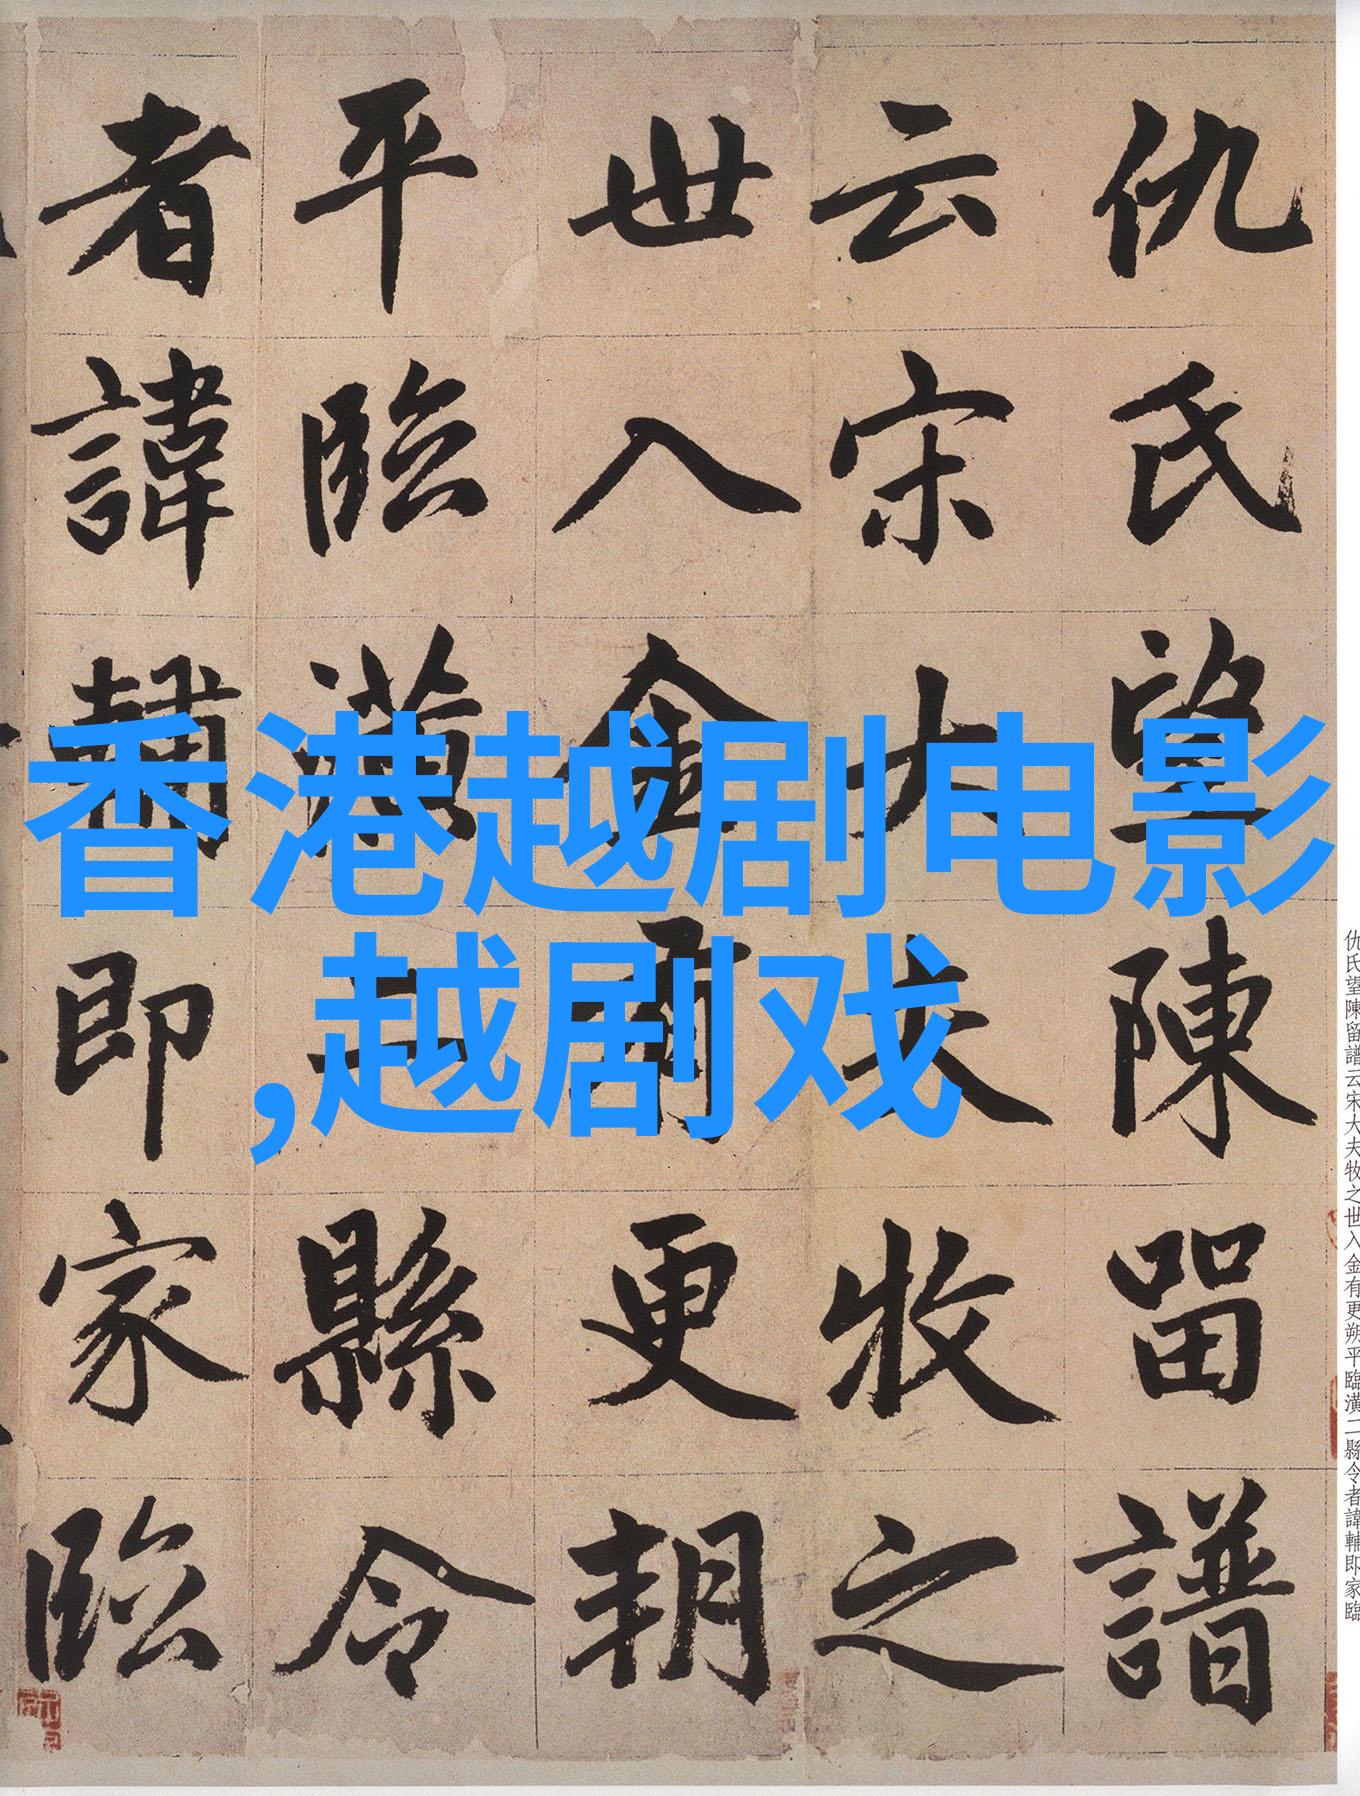 香港越剧电影
,越剧戏
仇氏望陳留譜
云宋大夫牧之
世入金有更朔
平臨潢二縣令
者諱輔即家臨
仇氏望陳留譜云宋大夫牧之世入金有更朔平臨潢二縣令者諱輔即家臨